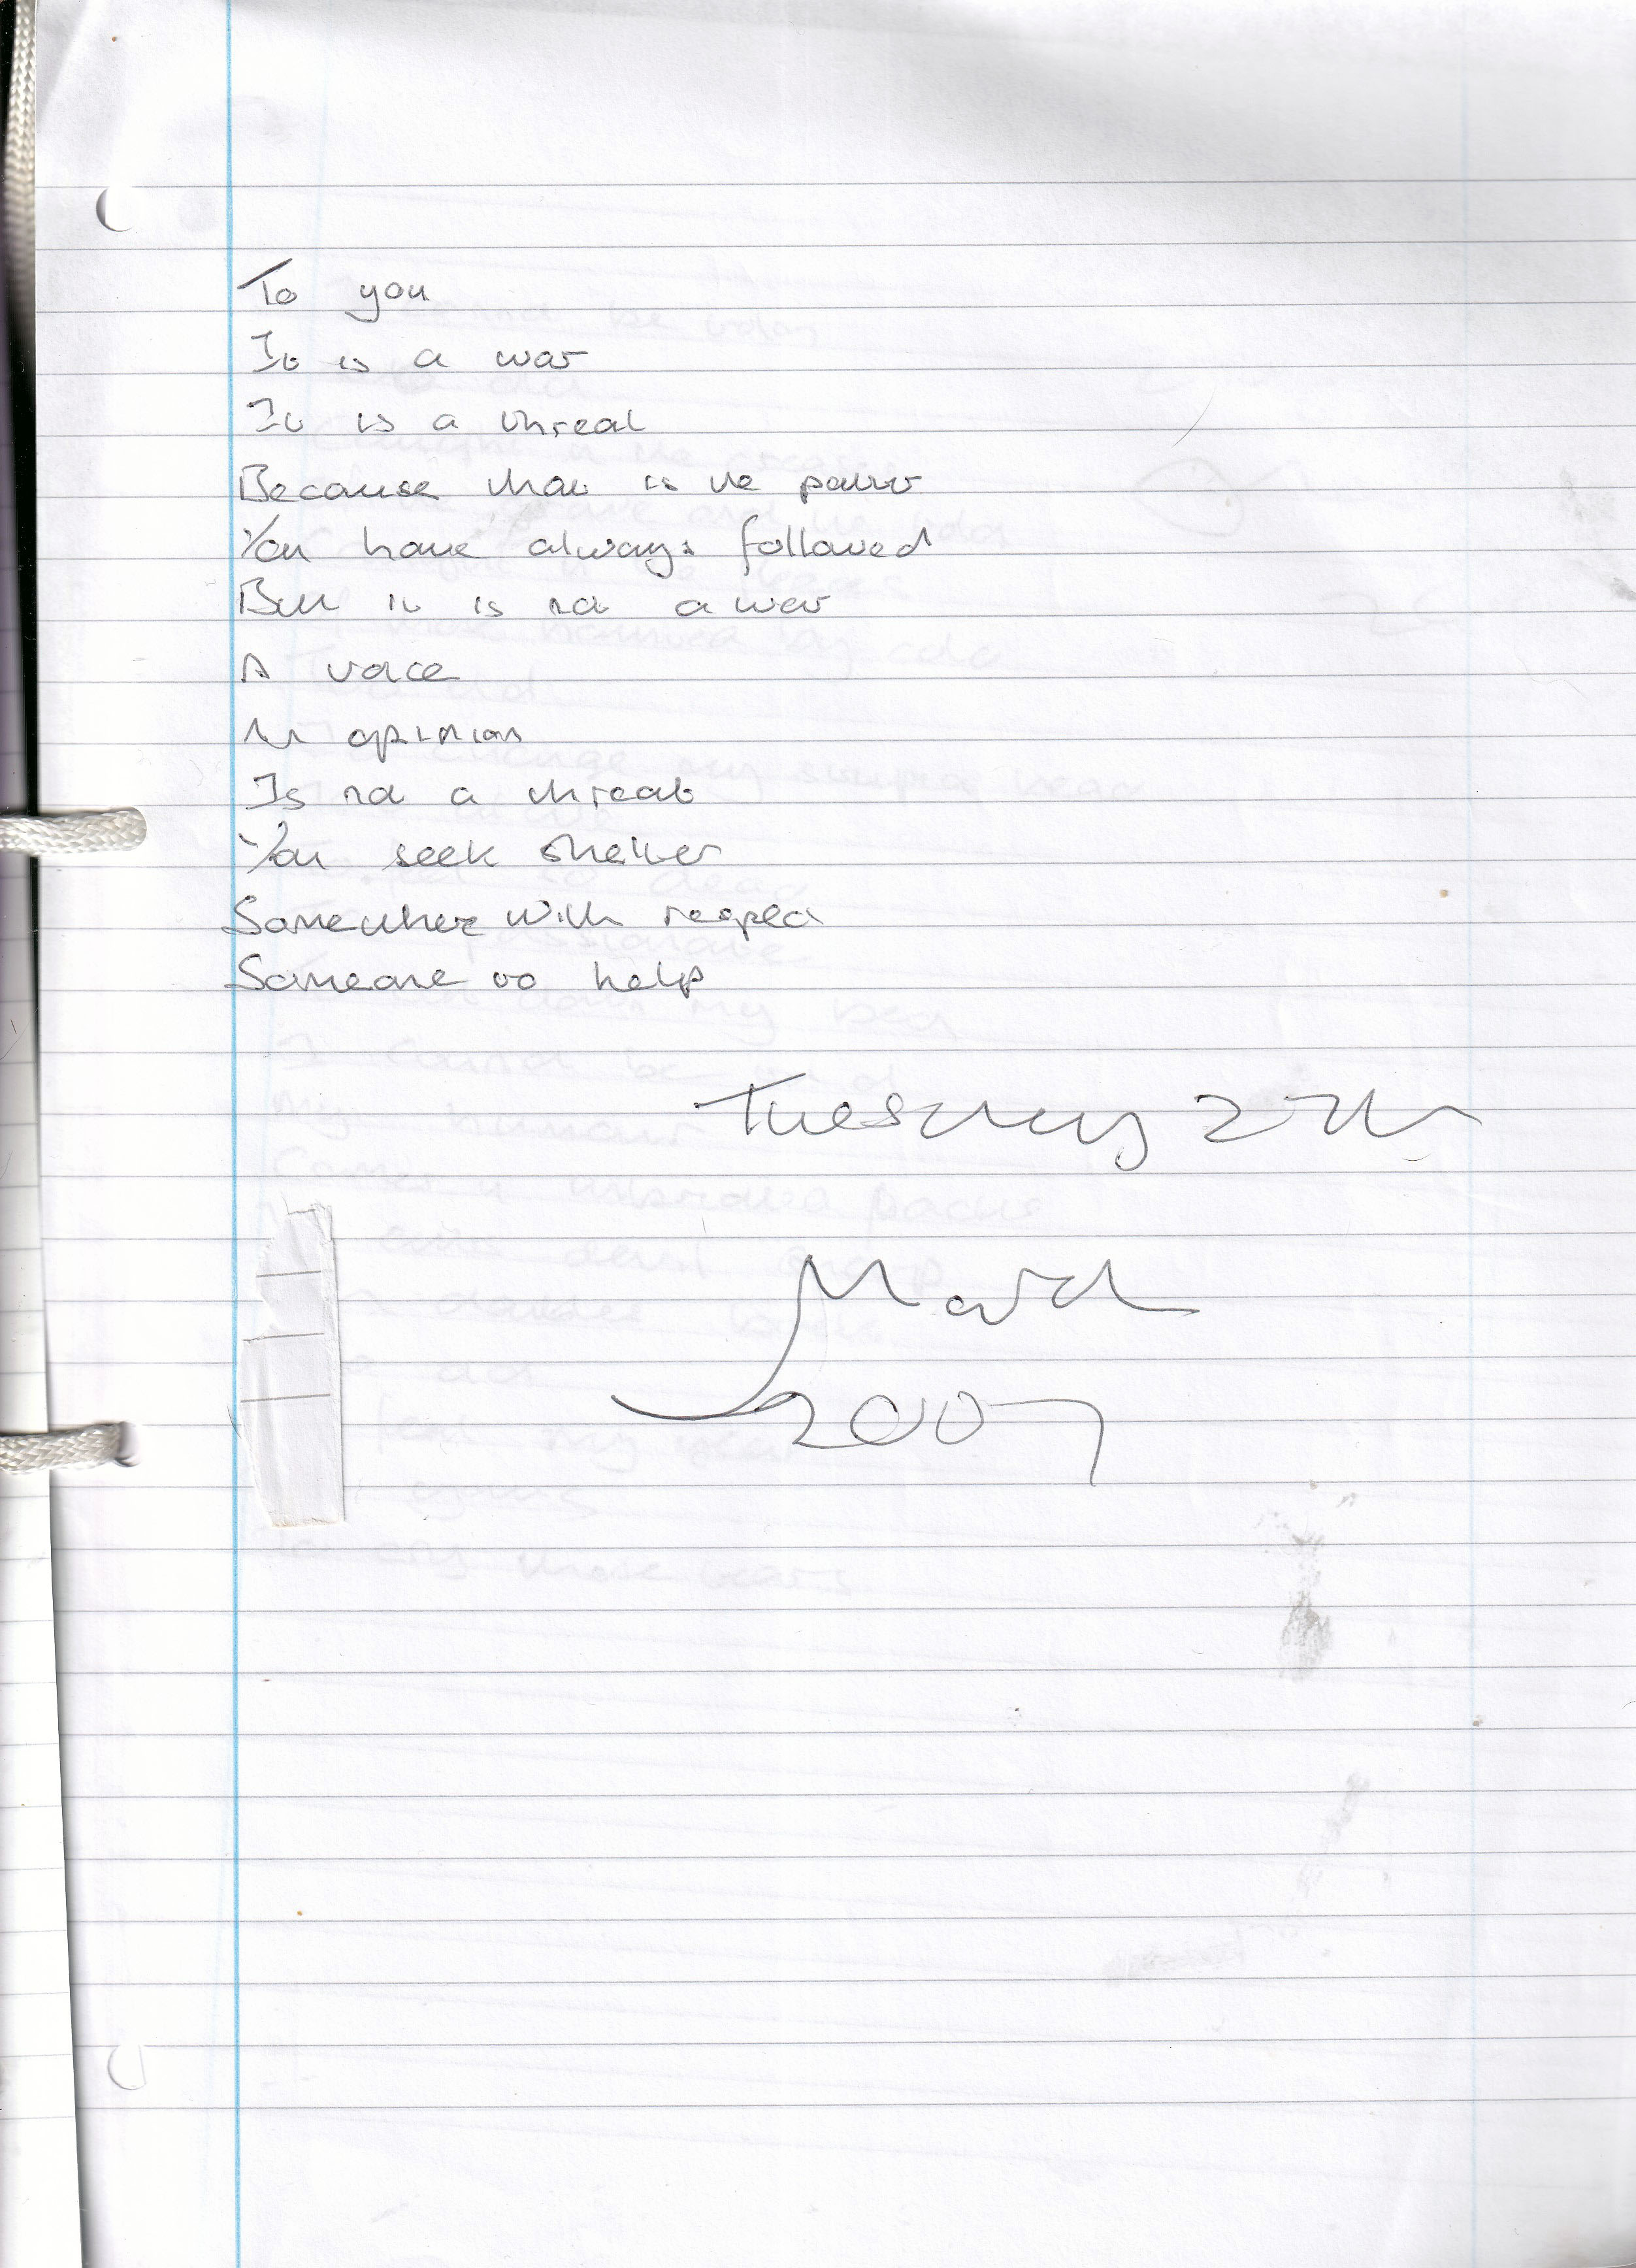 To you
It is a war
It is a threat
Because that is the path
You have always followed
But it is not a war
A voice
An opinion
Is not a threat
You seek shelter
Somewhere with respect
Someone to help
Tuesday 27th
March
2007